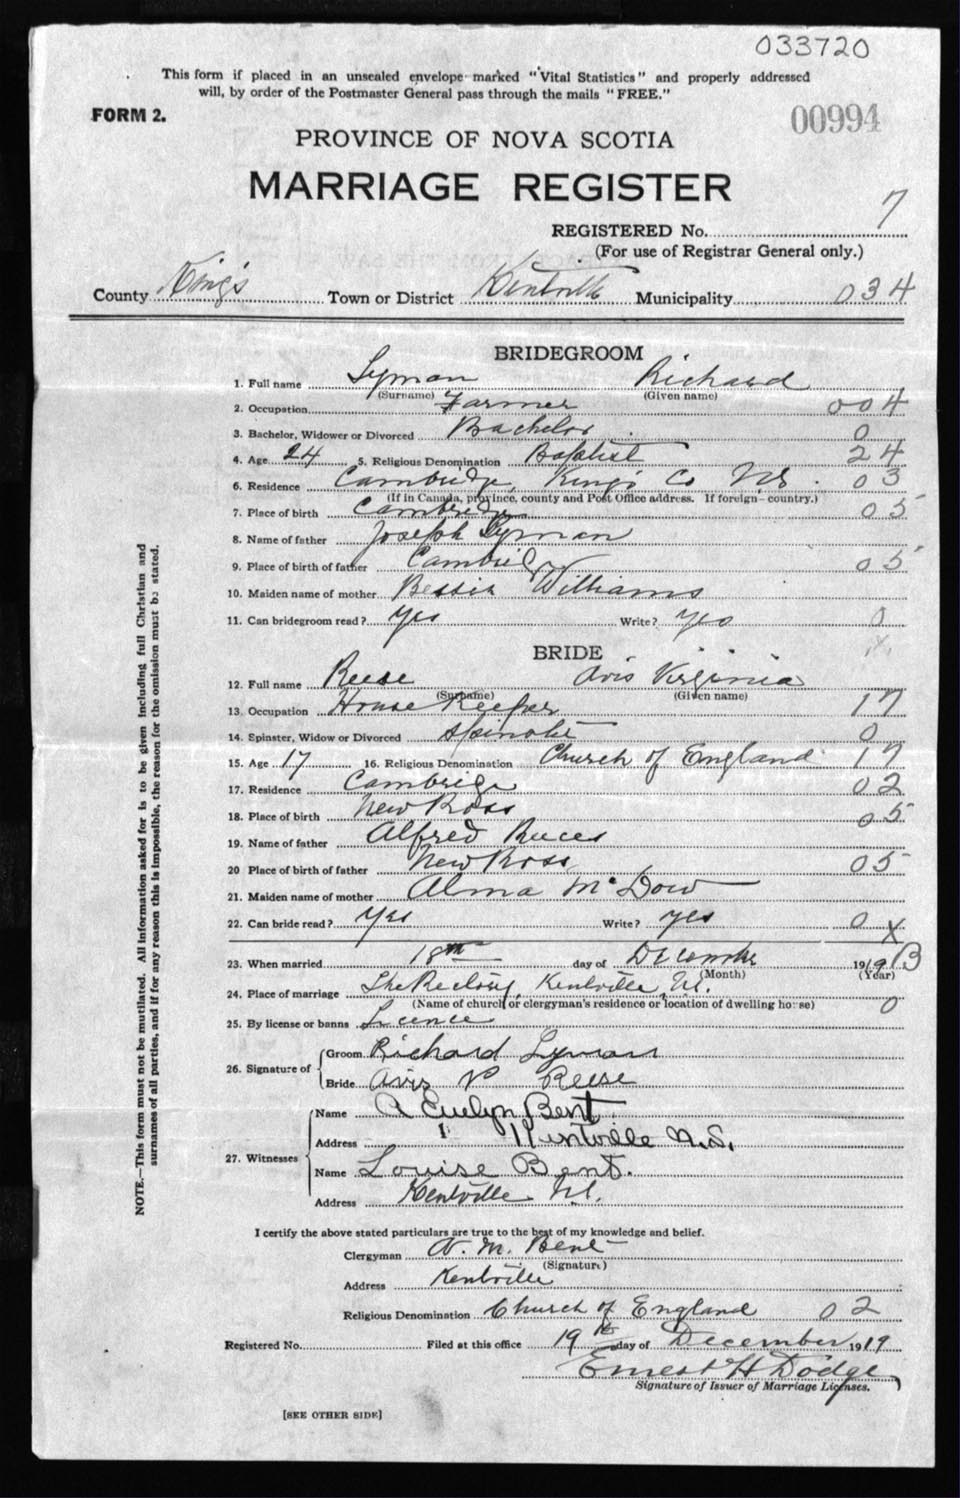 033720
This form if placed in an unsealed envelope marked "Vital Statistics" and properly addressed
will, by order of the Postmaster General pass through the mails "FREE."
FORM 2.
00994
PROVINCE OF NOVA SCOTIA
MARRIAGE REGISTER
REGISTERED No. 7
(For use of Registrar General only.)
County Kings Town or District Kentville Municipality 034
BRIDEGROOM
1. Full name Lyman Richard
(Surname) (Given name)
2. Occupation Farmer 004
3. Bachelor, Widower or Divorced Bachelor 0
4. Age 24 5. Religious Denomination Baptist 24
6. Residence Cambridge, Kings Co NS. 03
(If in Canada, province, county and Post Office address. If foreign—country.)
7. Place of birth Cambridge 05
8. Name of father Joseph Lyman
9. Place of birth of father Cambridge 05
10. Maiden name of mother Bessie Williams
11. Can bridegroom read? Yes Write? Yes 0
BRIDE
12. Full name Reese Avis Virginia
(Surname) (Given name)
13. Occupation House Keeper 17
14. Spinster, Widow or Divorced Spinster 0
15. Age 17 16. Religious Denomination Church of England 17
17. Residence Cambridge 02
18. Place of birth New Ross 05
19. Name of father Alfred Reece
20 Place of birth of father New Ross 05
21. Maiden name of mother Alma McDow
22. Can bride read? Yes Write? yes 0 X
23. When married 18th day of December 1919 B
(Month) (Year)
24. Place of marriage The Rectory, Kentville, NS. 0
(Name of church or clergyman's residence or location of dwelling house)
25. By license or banns Licence
26. Signature of Groom Richard Lyman
Bride Avis V Reese
27. Witnesses Name A Evelyn Bent.
Address Kentville N.S.
Name Louise Bent.
Address Kentville NS.
I certify the above stated particulars are true to the best of my knowledge and belief.
Clergyman A. M. Bent
(Signature)
Address Kentville
Religious Denomination Church of England 02
Registered No. Filed at this office 19th day of December 1919
Ernest H Dodge
Signature of Issuer of Marriage Licenses.
[SEE OTHER SIDE]
NOTE.—This form must not be mutilated. All information asked for is to be given including full Christian and
surnames of all parties, and if for any reason this is impossible, the reason for the omission must be stated.